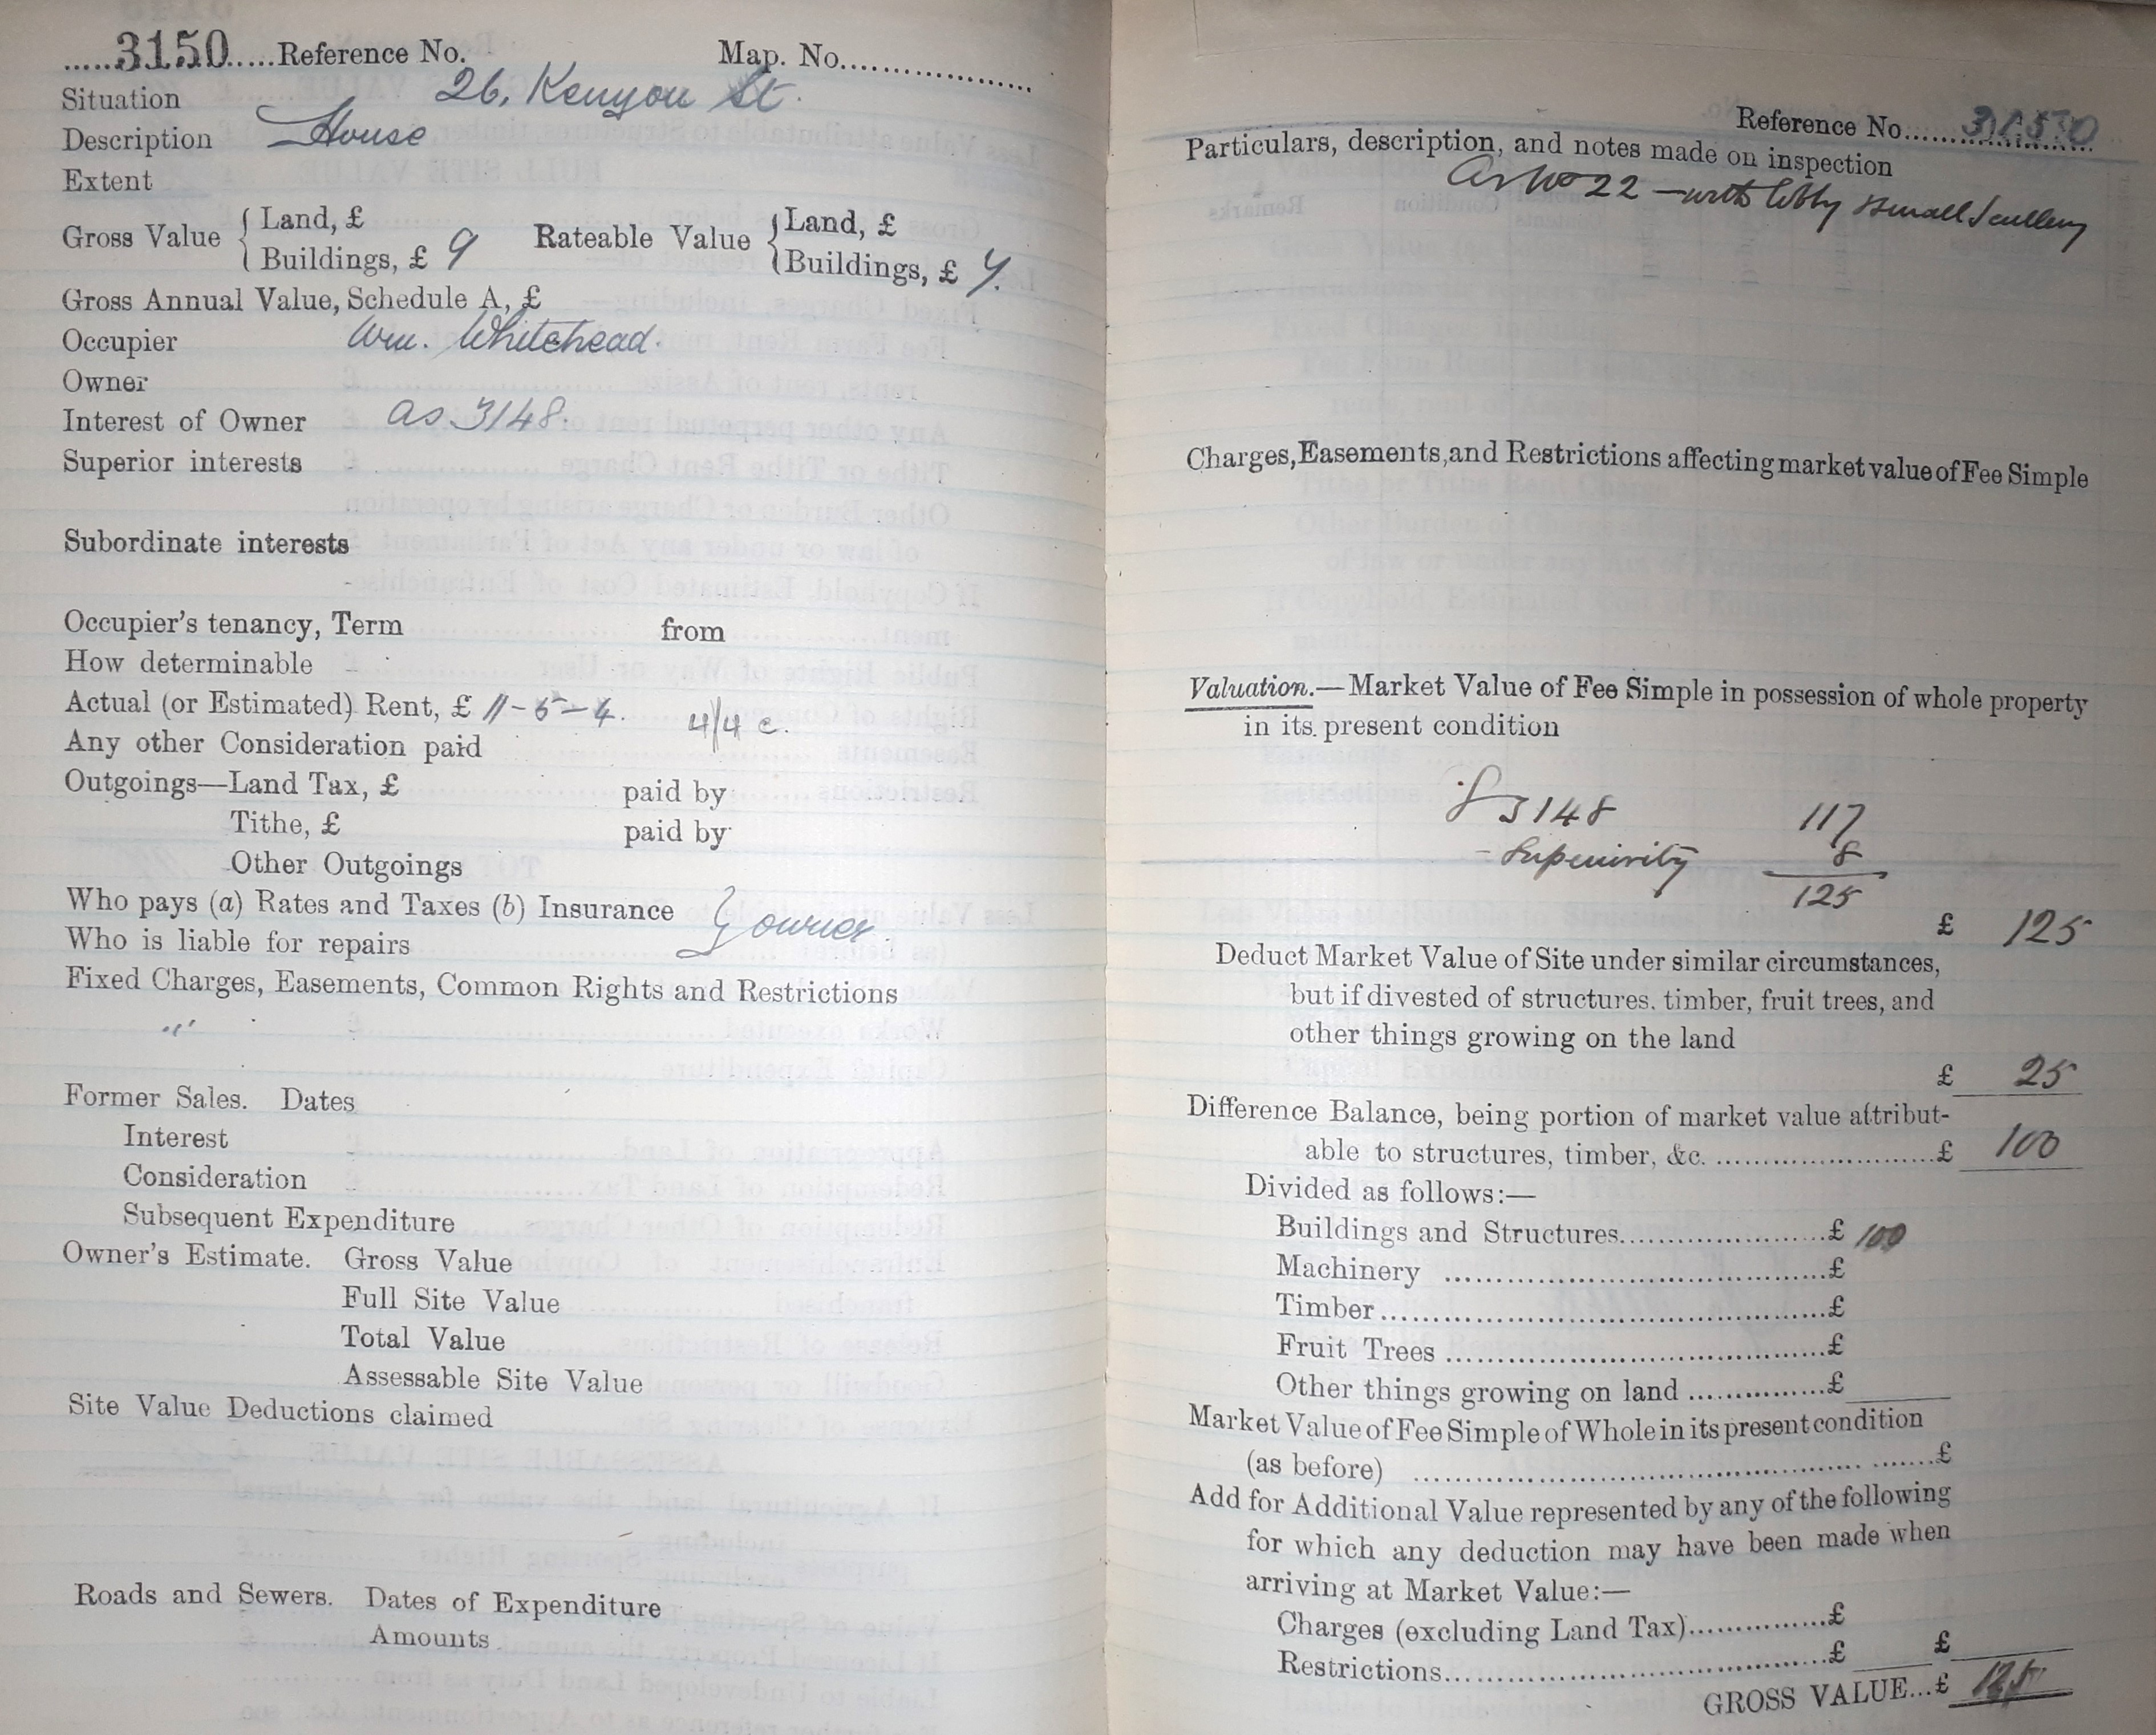 .....3150.....Reference No. Map. No....................
Situation 26, Kenyon St.
Description House
Extent
Gross Value { Land, £ Rateable Value { Land, £
Buildings, £ 9 Buildings, £ 7.
Gross Annual Value, Schedule A, £
Occupier Wm. Whitehead.
Owner
Interest of Owner as 3148.
Superior interests
Subordinate interests
Occupier's tenancy, Term from
How determinable
Actual (or Estimated) Rent, £ 11-5-4. 4/4 c.
Any other Consideration paid
Outgoings—Land Tax, £ paid by
Tithe, £ paid by
Other Outgoings
Who pays (a) Rates and Taxes (b) Insurance } owner.
Who is liable for repairs
Fixed Charges, Easements, Common Rights and Restrictions
Former Sales. Dates
Interest
Consideration
Subsequent Expenditure
Owner's Estimate. Gross Value
Full Site Value
Total Value
Assessable Site Value
Site Value Deductions claimed
Roads and Sewers. Dates of Expenditure
Amounts
Reference No.....3150
Particulars, description, and notes made on inspection
As No 22 – with lobby & small Scullery
Charges, Easements, and Restrictions affecting market value of Fee Simple
Valuation.—Market Value of Fee Simple in possession of whole property
in its present condition
3148 117
- Superiority 8
125
£ 125
Deduct Market Value of Site under similar circumstances,
but if divested of structures, timber, fruit trees, and
other things growing on the land
£ 25
Difference Balance, being portion of market value attribut-
able to structures, timber, &c. ..........................£ 100
Divided as follows:—
Buildings and Structures........................£ 100
Machinery ............................................£
Timber....................................................£
Fruit Trees ............................................£
Other things growing on land ...............£
Market Value of Fee Simple of Whole in its present condition
(as before) ..................................................£
Add for Additional Value represented by any of the following
for which any deduction may have been made when
arriving at Market Value:—
Charges (excluding Land Tax)...............£
Restrictions............................................£ £
GROSS VALUE...£ 125